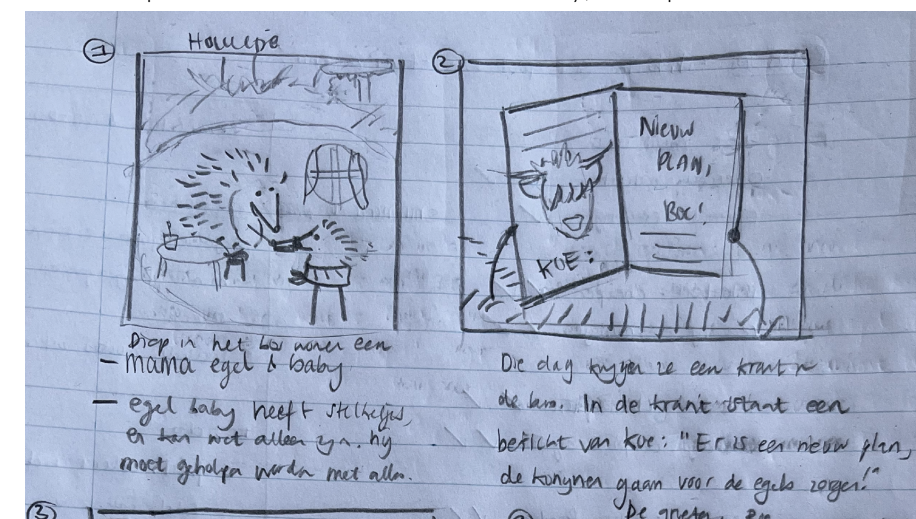 1
Diep in het bos wonen een
mama egel & baby
egel baby heeft stekeltjes,
en kan niet alleen zijn. hij
moet geholpen worden met alles.
2
KOE:
NIEUW
PLAN,
BOE!
Die dag krijgen ze een krant in
de bus. In de krant staat een
bericht van KOE: "Er is een nieuw plan,
de konijnen gaan voor de egels zorgen!"
3
De